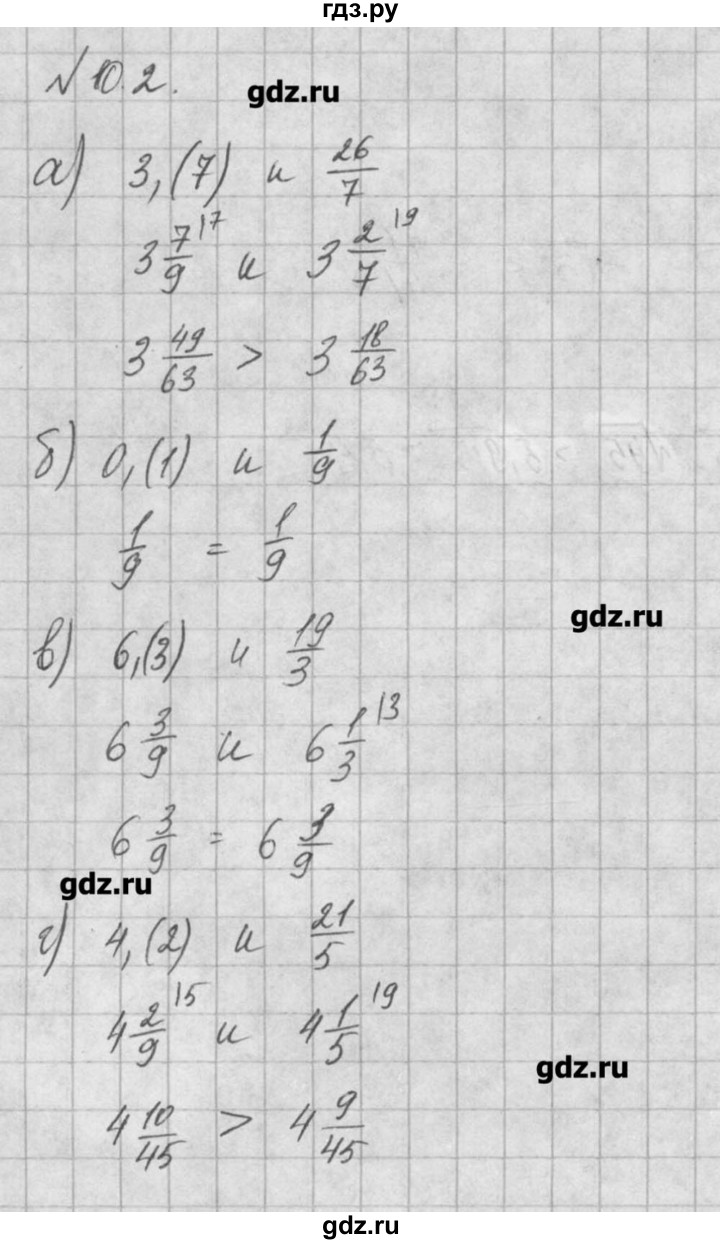 гдз.ру
№ 10.2.
gdz.ru
а) 3,(7) и 26/7
3 7/9 |7 и 3 2/7 |9
3 49/63 > 3 18/63
б) 0,(1) и 1/9
1/9 = 1/9
gdz.ru
в) 6,(3) и 19/3
6 3/9 и 6 1/3 |3
6 3/9 = 6 3/9
gdz.ru
г) 4,(2) и 21/5
4 2/9 |5 и 4 1/5 |9
gdz.ru
4 10/45 > 4 9/45
gdz.ru